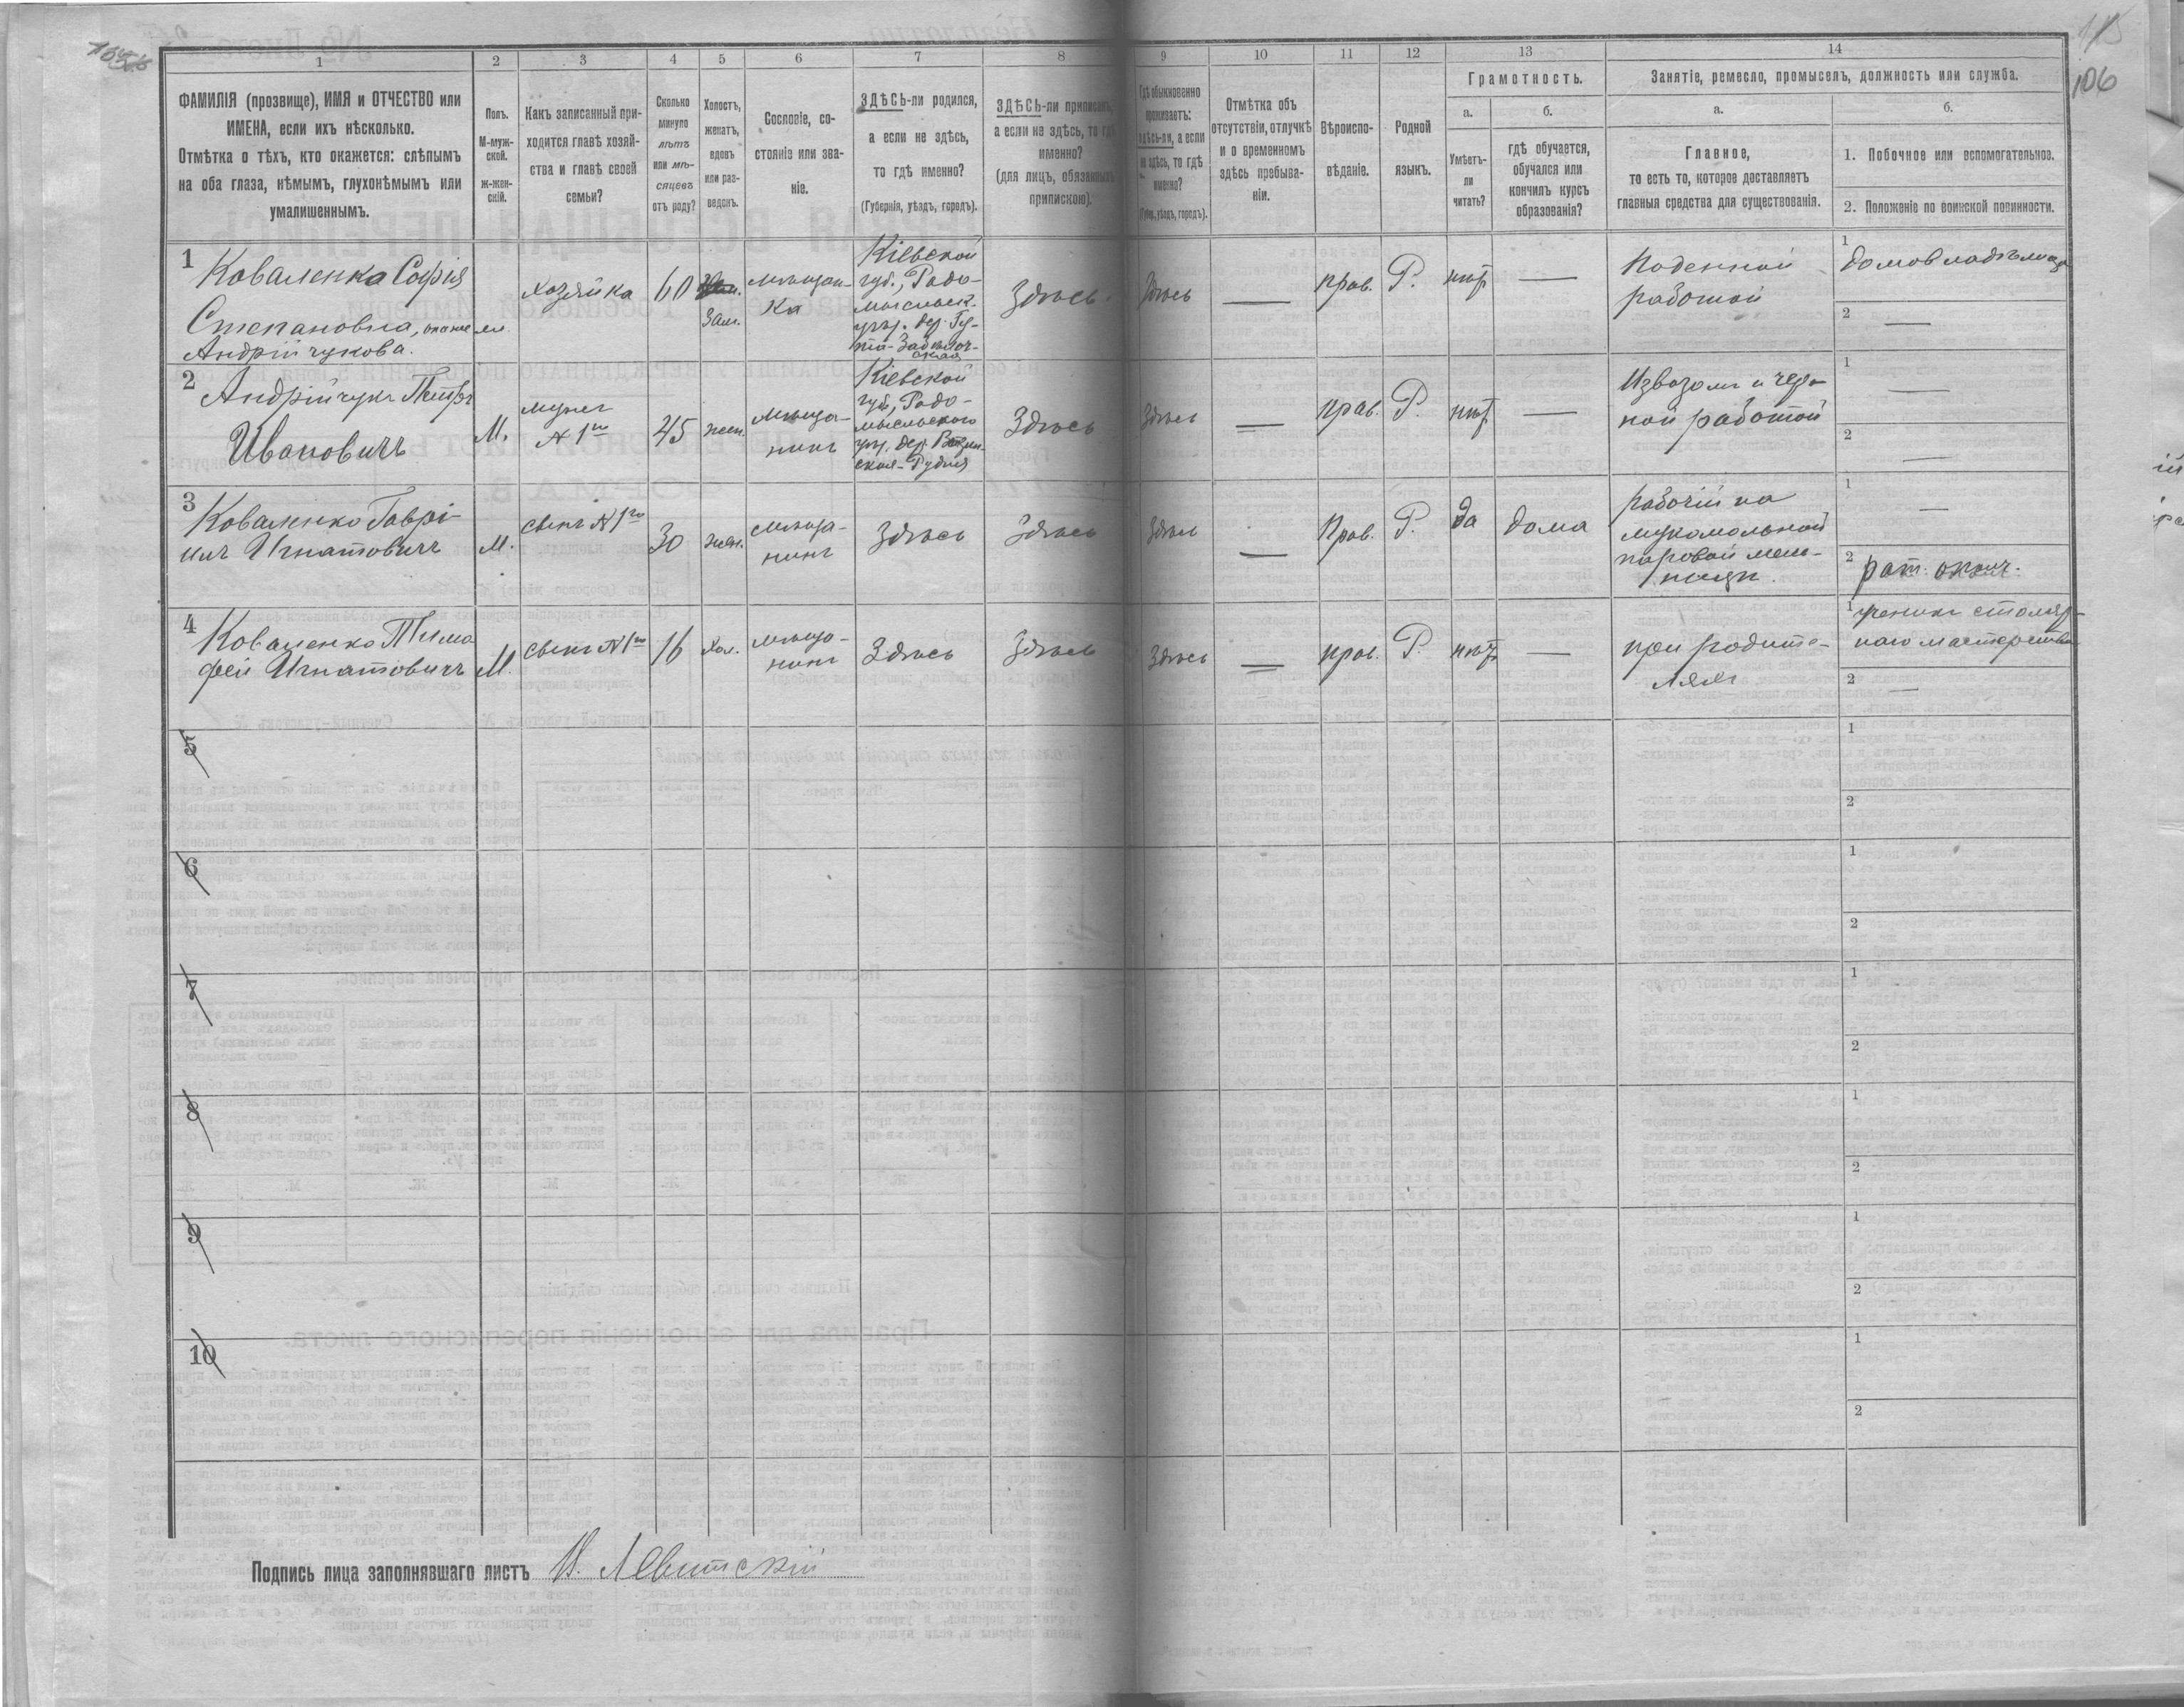 115
106
1 2 3 4 5 6 7 8 9 10 11 12 13 14
ФАМИЛІЯ (прозвище), ИМЯ и ОТЧЕСТВО или
ИМЕНА, если ихъ нѣсколько.
Отмѣтка о тѣхъ, кто окажется: слѣпымъ
на оба глаза, нѣмымъ, глухонѣмымъ или
умалишеннымъ.
Полъ.
М-муж-
ской.
ж-жен-
скій.
Какъ записанный при-
ходится главѣ хозяй-
ства и главѣ своей
семьи?
Сколько
минуло
лѣтъ
или мѣ-
сяцевъ
отъ роду?
Холостъ,
женатъ,
вдовъ
или раз-
веденъ.
Сословіе, со-
стояніе или зва-
ніе.
ЗДѢСЬ-ли родился,
а если не здѣсь,
то гдѣ именно?
(Губернія, уѣздъ, городъ).
ЗДѢСЬ-ли приписанъ,
а если не здѣсь, то гдѣ
именно?
(для лицъ, обязанныхъ
припискою).
Гдѣ обыкновенно
проживаетъ:
здѣсь-ли, а если
не здѣсь, то гдѣ
именно?
(Губер., уѣздъ, городъ).
Отмѣтка объ
отсутствіи, отлучкѣ
и о временномъ
здѣсь пребыва-
ніи.
Вѣроиспо-
вѣданіе.
Родной
языкъ.
Грамотность.
а.
Умѣетъ-
ли
читать?
б.
гдѣ обучается,
обучался или
кончилъ курсъ
образованія?
Занятіе, ремесло, промыселъ, должность или служба.
а.
Главное,
то есть то, которое доставляетъ
главныя средства для существованія.
б.
1. Побочное или вспомогательное.
2. Положеніе по воинской повинности.
1
Коваленка Софія
Степановна,
Андрійчукова.
хозяйка
60
Зам.
мѣщан-
ка
Кіевской
губ., Радо-
мысльск.
уѣз. дер. Гу-
та-Забѣлоч-
ская
Здѣсь
Здѣсь
—
прав.
Р.
нѣт
—
Поденной
работой
1 домовладѣлица
2 —
2
Андрійчукъ Петръ
Ивановичъ
М.
мужъ
№ 1го
45
жен.
мѣща-
нинъ
Кіевской
губ., Радо-
мысльского
уѣз. дер.
ская-Рудня
Здѣсь
Здѣсь
—
прав.
Р.
нѣт
—
Извозомъ и чер-
ной работой
1 —
2 —
3
Коваленко Гаврі-
илъ Игнатовичъ
М.
сынъ № 1го
30
жен.
мѣща-
нинъ
Здѣсь
Здѣсь
Здѣсь
—
Прав.
Р.
да
дома
рабочій на
мукомольной
паровой мель-
ницѣ.
1 —
2 рат. ополч.
4
Коваленко Тимо
фей Игнатовичъ
М.
сынъ № 1го
16
хол.
мѣща-
нинъ
Здѣсь
Здѣсь
Здѣсь
—
прав.
Р.
нѣт
—
при родите-
ляхъ
1 ученикъ столяр-
наго мастерства
2 —
5
1
2
6
1
2
7
1
2
8
1
2
9
1
2
10
1
2
Подпись лица заполнявшаго листъ Левитскій